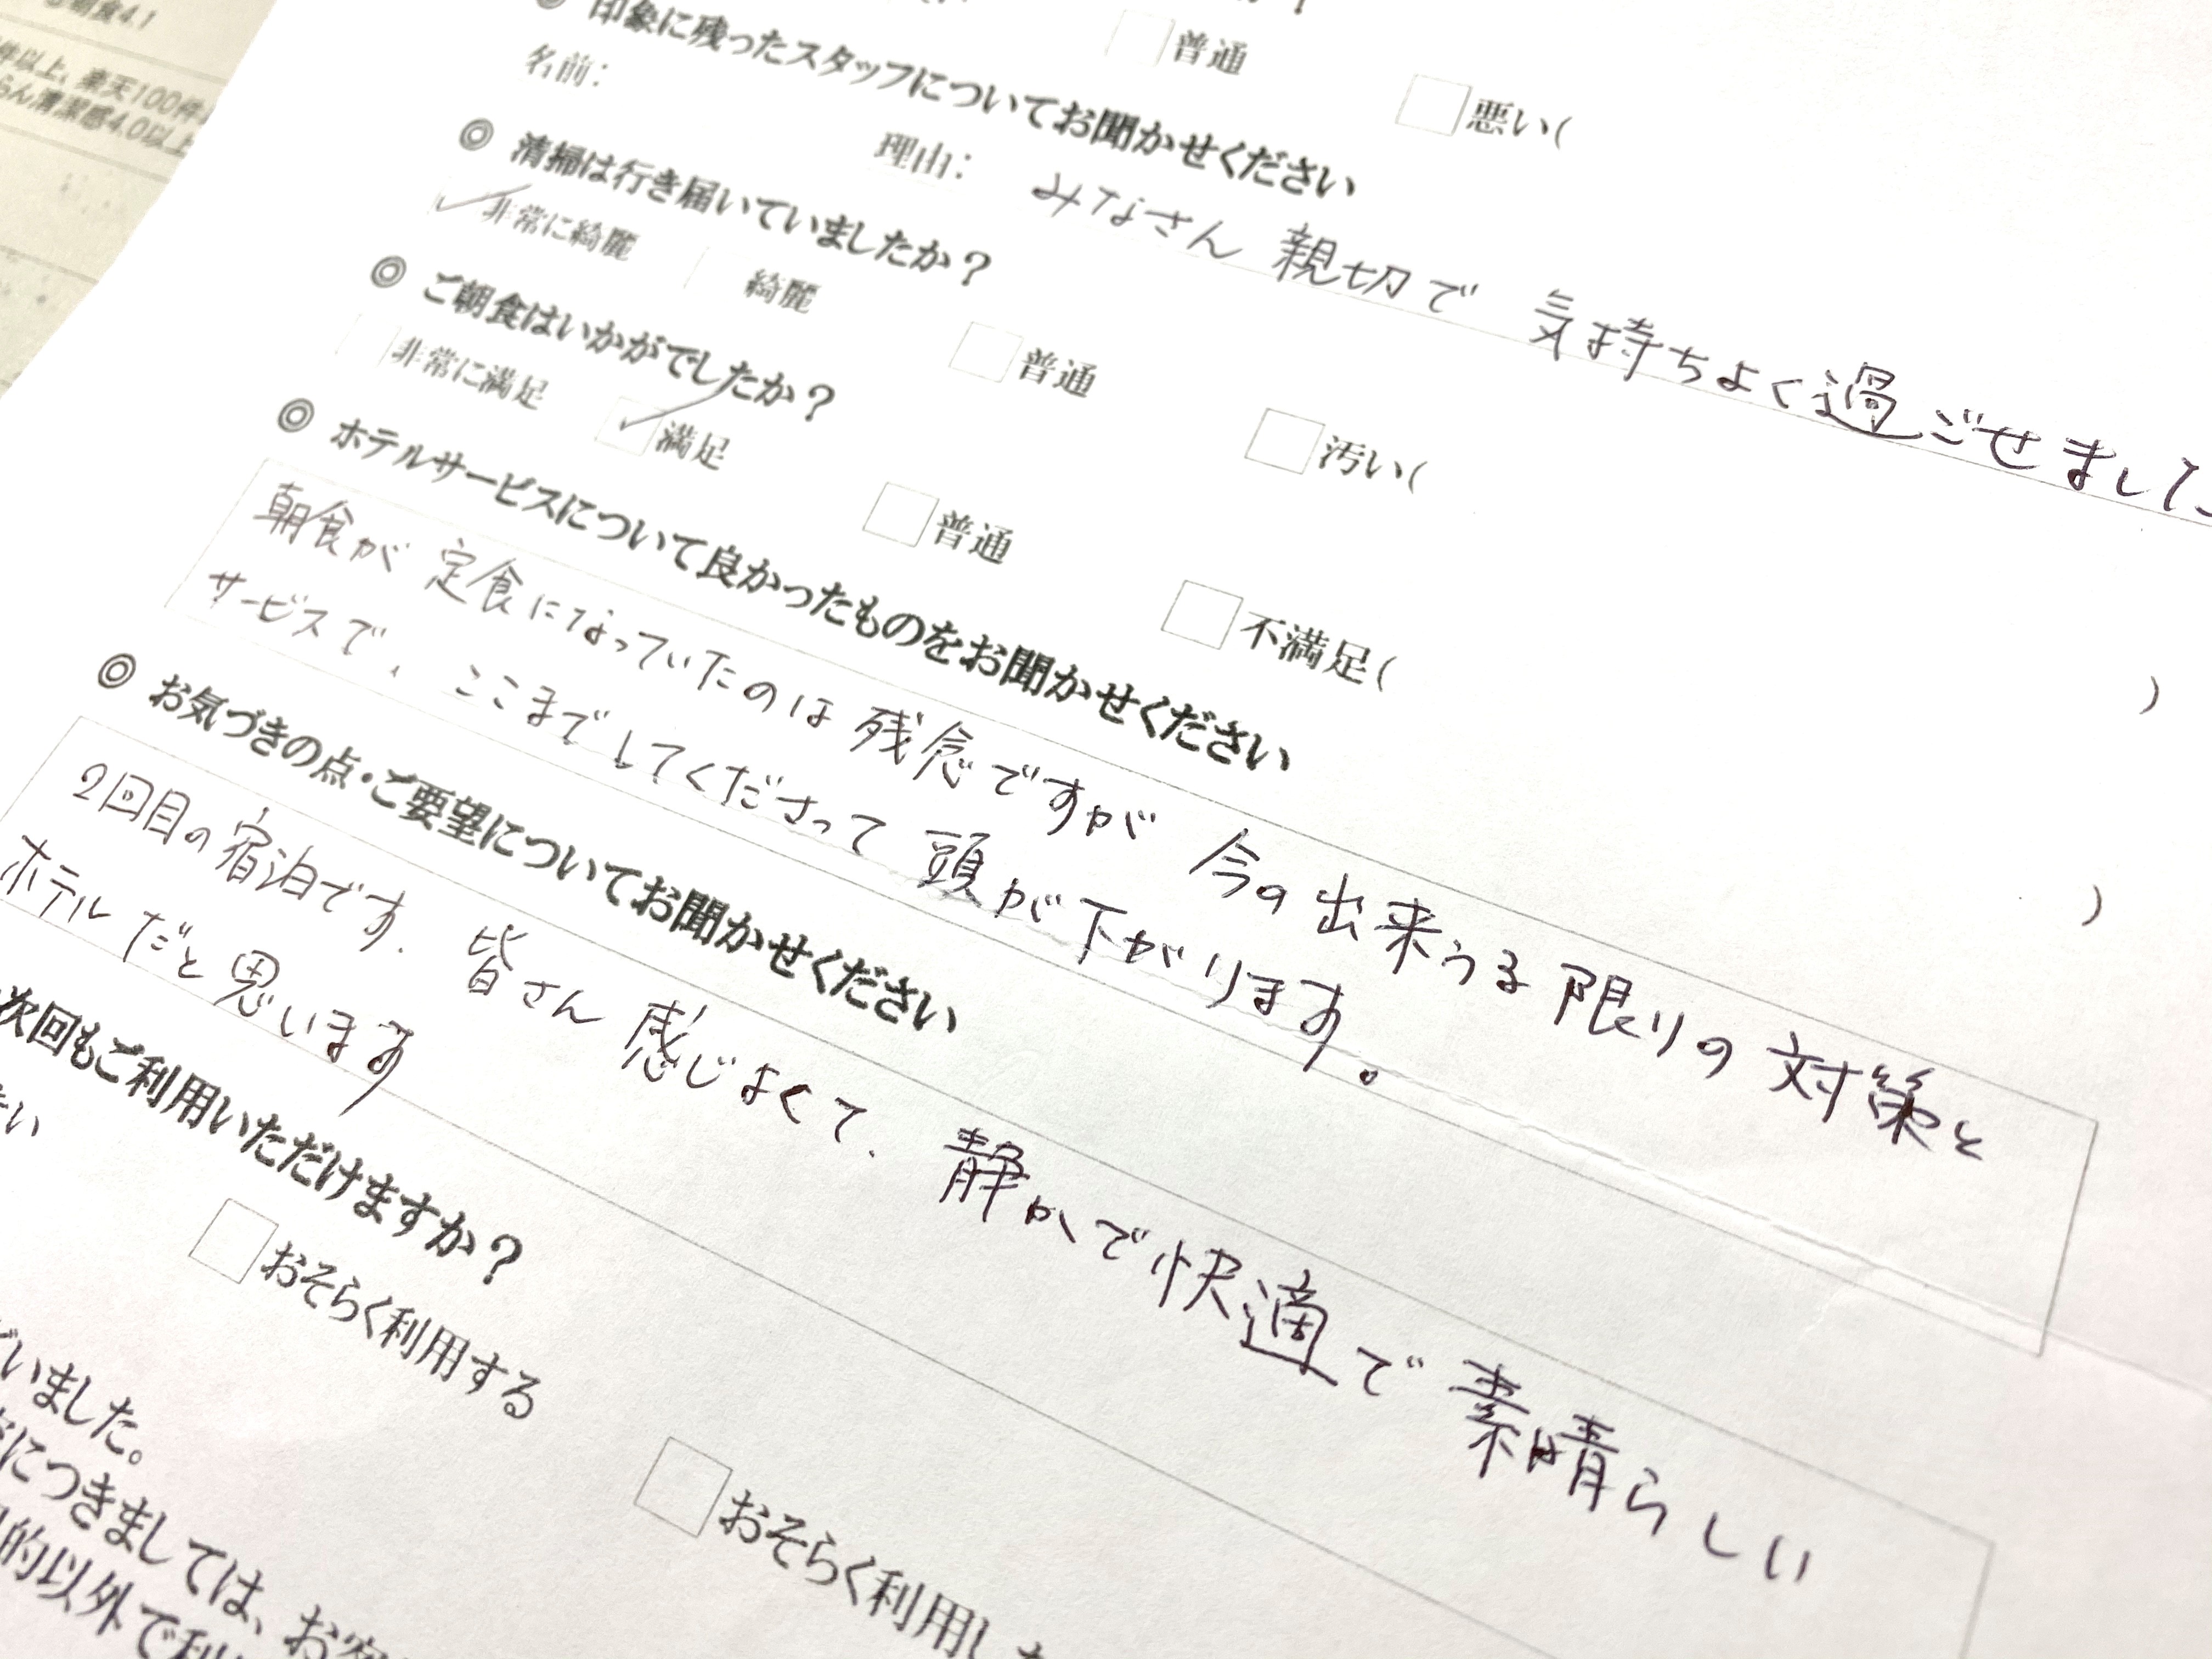 朝食4.1
件以上、楽天100件
らん清潔感4.0以上
普通
悪い(
印象に残ったスタッフについてお聞かせください
名前:
理由: みなさん 親切で 気持ちよく過ごせました
◎ 清掃は行き届いていましたか？
非常に綺麗 綺麗 普通 汚い( )
◎ ご朝食はいかがでしたか？
非常に満足 満足 普通 不満足( )
◎ ホテルサービスについて良かったものをお聞かせください
朝食が 定食になっていたのは 残念ですが 今の出来うる限りの対策と
サービスで、ここまでしてくださって 頭が下がります。
◎ お気づきの点・ご要望についてお聞かせください
2回目の宿泊です. 皆さん 感じよくて. 静かで快適で 素晴らしい
ホテルだと思います
次回もご利用いただけますか？
さい
おそらく利用する
おそらく利用し
いました。
につきましては、お客
的以外で利